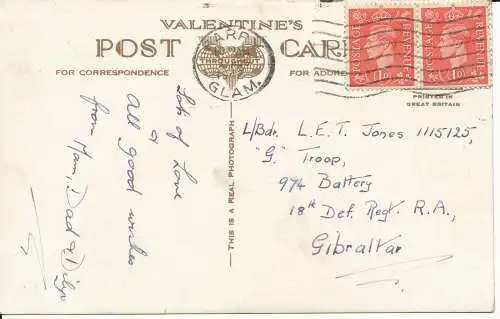 VALENTINE'S
POST CARD
FOR CORRESPONDENCE
FOR ADDRE
THROUGHOUT
GLAM.
POSTAGE REVENUE
1D
POSTAGE REVENUE
1D
PRINTED IN
GREAT BRITAIN
THIS IS A REAL PHOTOGRAPH
Lots of Love
&
All good wishes
from Mam, Dad &
L/Bdr. L.E.T. Jones 1115125,
"G" Troop,
974 Battery
18th Def. Regt. R.A.,
Gibraltar